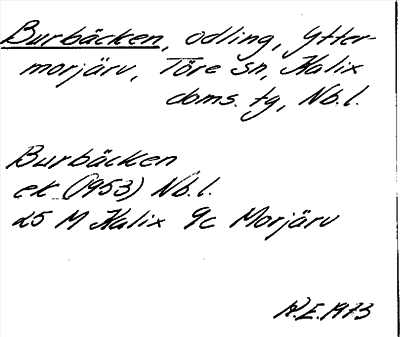 Burbäcken, odling, Ytter-
morjärv, Töre sn, Kalix
doms. tg, Nb.l.
Burbäcken
ek (1953) Nb.l.
25 M Kalix 9c Morjärv
W.E. 1973